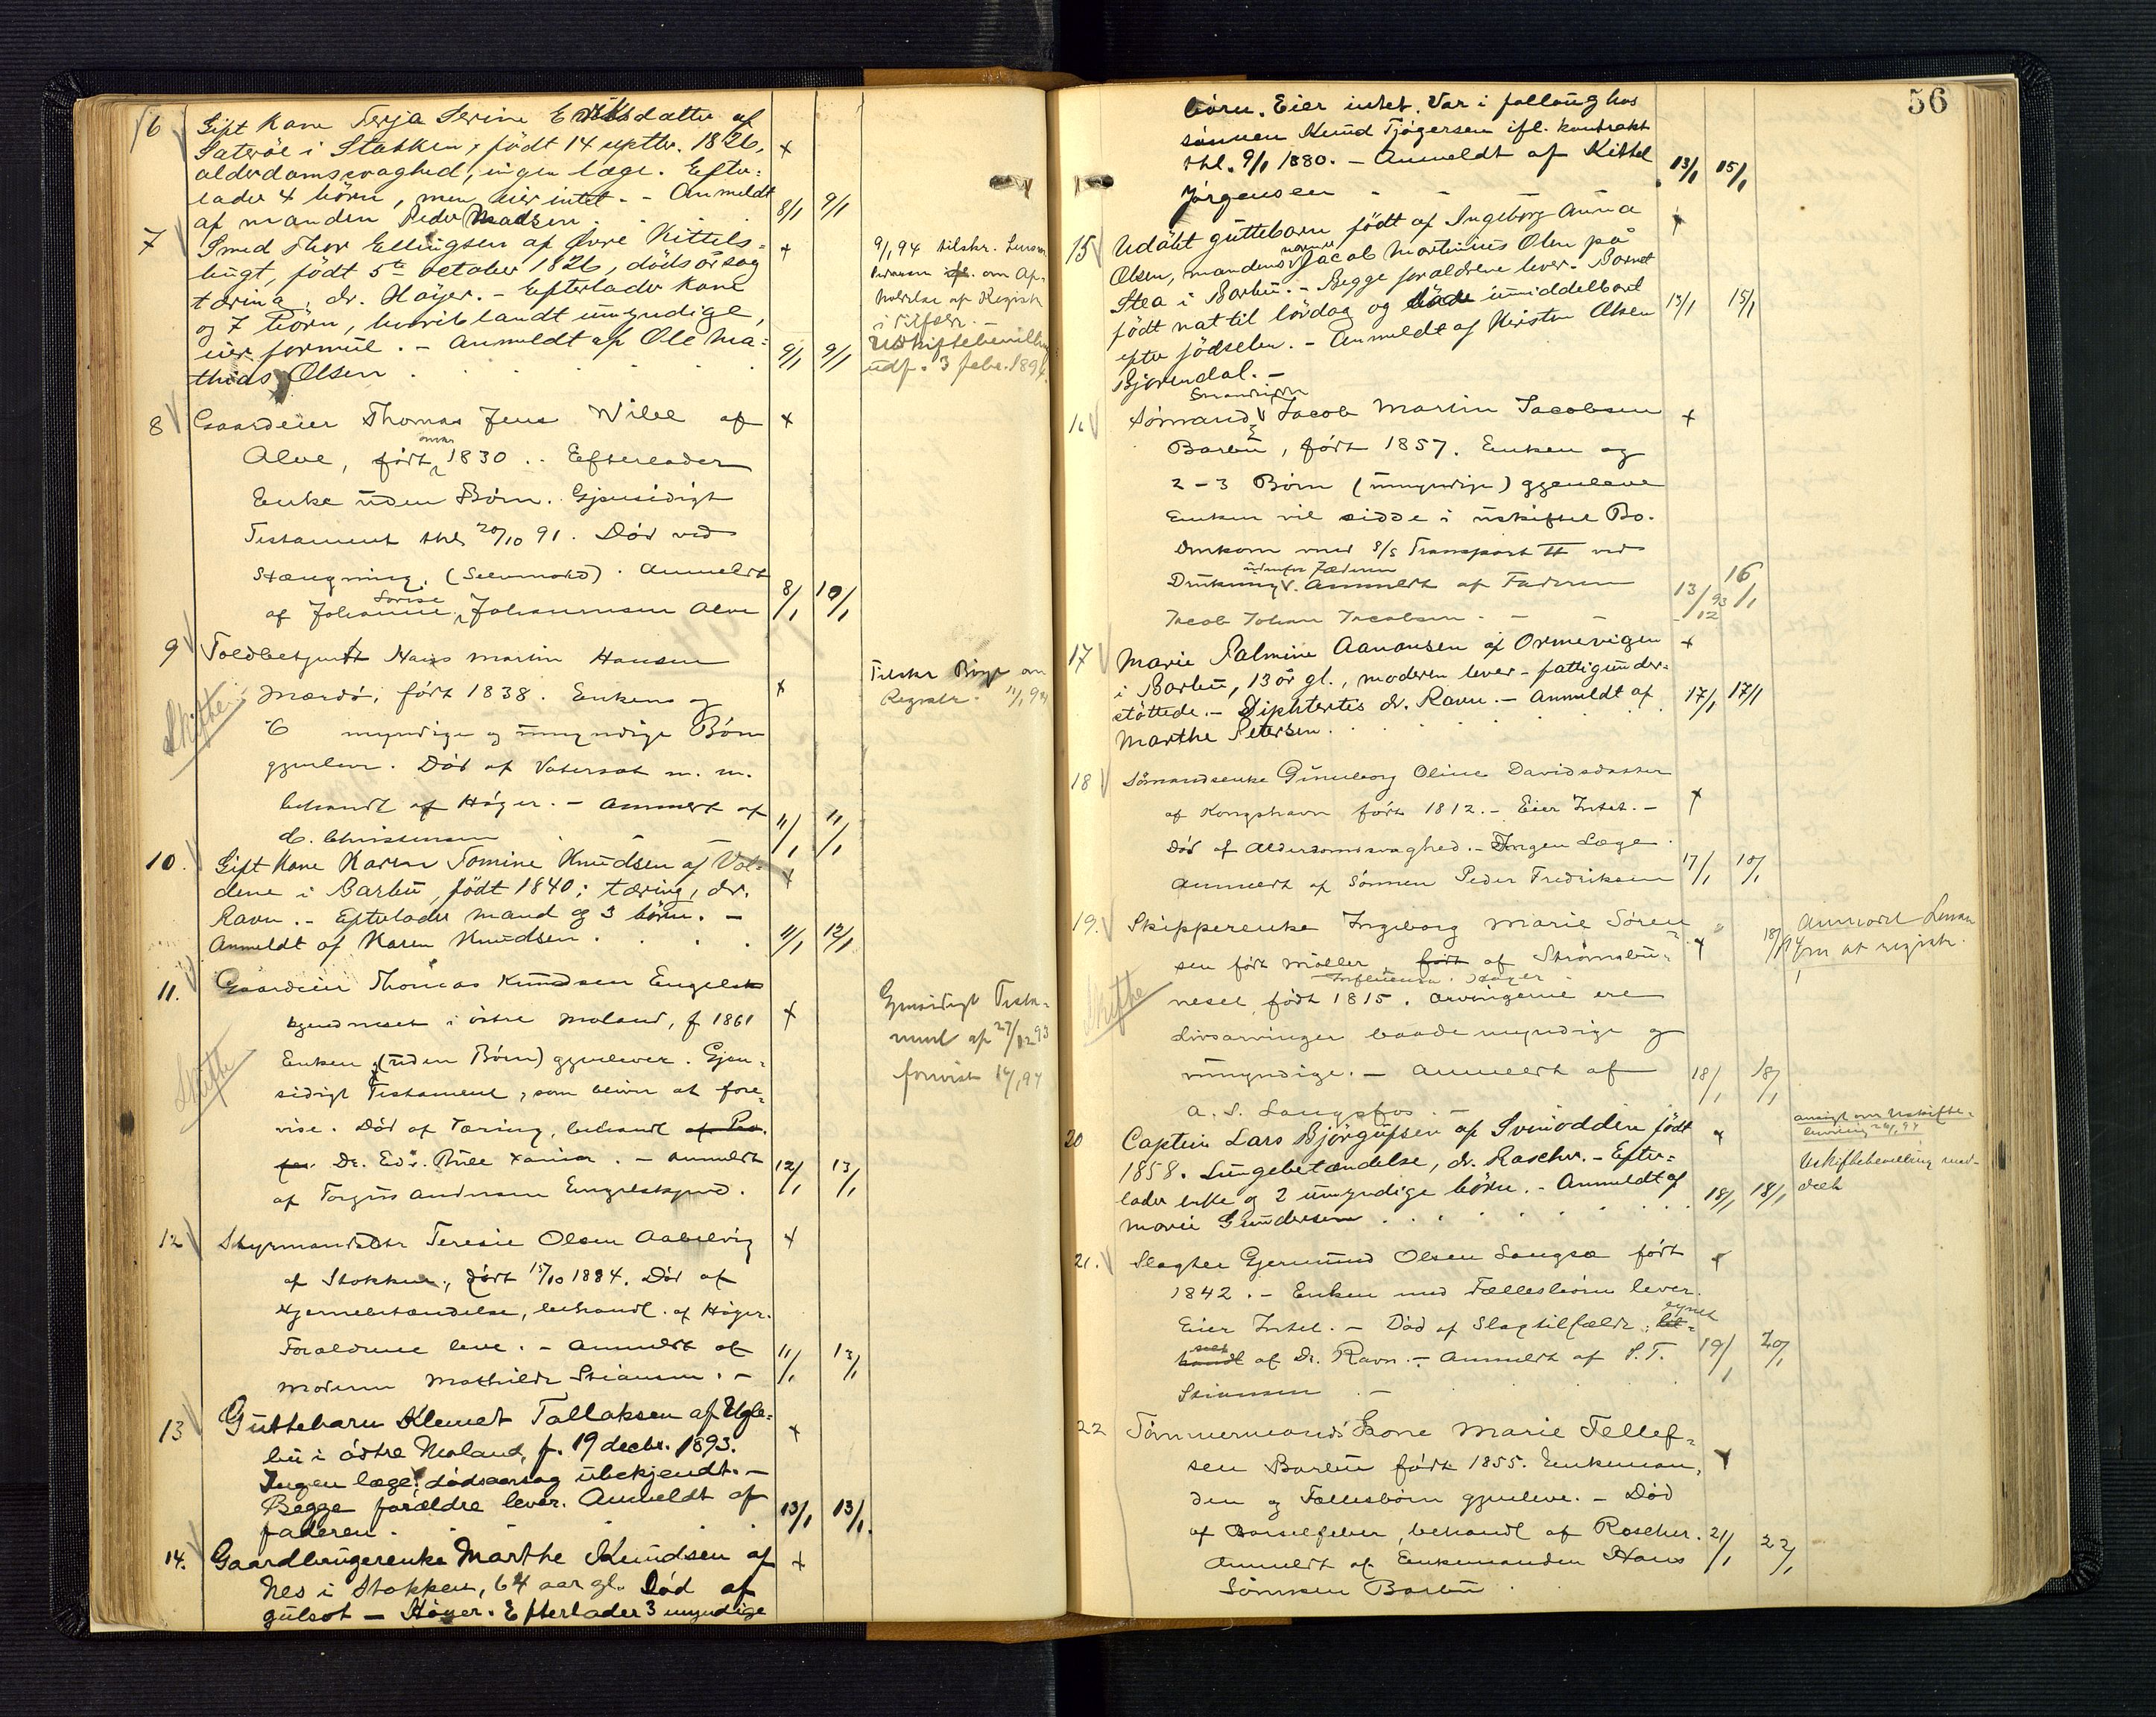 6 Gift Kone Terja Serine Eriksdatter af
Saterøe i Stokken, født 14 septbr. 1826,
alderdomssvaghed, ingen læge. Efter=
lader 4 børn, men eier intet. - Anmeldt
af manden Peder Madsen. 8/1 9/1
7 Smed Thor Ellingsen af Øvre Kittels=
bugt, født 5te october 1826, dødsårsag
tæring, dr. Høyer. - Efterlader kone
og 7 børn, hvoriblandt umyndige,
eier formue. - Anmeldt af Ole Ma=
thias Olsen 9/1 9/1
9/1 94 tilskr.
om Af=
holdelse af Registr
i Tilfælde. -
Uskiftebevilling
udf. 3 febr. 1894
8 Gaardeier Thomas Jens Wille af
Alve, født omkr 1830. Efterlader
Enke uden Børn. Gjensidigt
Testament thl 20/10 91. Død ved
Hængning. (Selvmord). Anmeldt
af Johanne Lovise Johannesen Alve 8/1 10/1
9 Toldbetjent Hans Martin Hansen
Mærdø, født 1838. Enken og
6 myndige og umyndige Børn
gjenlever. Død af Vatersot m. m.
behandl af Høyer. - Anmeldt af
C. Christensen 11/1 11/1
Skifte
Tilskr Birge om
Registr. 11/1 94
10. Gift Kone Karen Tomine Knudsen af Vol=
dene i Barbu, født 1840; tæring, dr.
Ravn. - Efterlader mand og 3 børn. -
Anmeldt af Karen Knudsen. 11/1 12/1
11. Gaardeier Thomas Knudsen Engelsk
kjendneset i østre Moland, f 1861
Enken (uden Børn) gjenlever. Gjen=
sidigt Testament, som bliver at fore=
vise. Død af Tæring, behandl af Pro.
fes. Dr. Edv. Bull Xania. - Anmeldt
af Torgus Andersen Engelskjend. 12/1 13/1
Skifte
Gjensidigt Testa=
ment af 27/12 93
forevist 14/1 94
12 Styrmandsdtr Teresie Olsen Aabelvig
af Stokken, født 15/10 1884. Død af
Hjernebetændelse, behandl. af Høyer.
Forældrene leve. - Anmeldt af
Moderen Mathilde Stiansen. - 11/1 13/1
13 Guttebarn Klemet Tallaksen af Ugle=
bu i østre Moland, f. 19 decbr. 1893.
Ingen læge. dødsaarsag ubekjendt. -
Begge forældre lever. Anmeldt af
faderen. 13/1 13/1.
14. Gaardbrugerenke Marthe Knudsen af
Nes i Stokken, 64 aar gl. Død af
gulsot - Høyer. Efterlader 3 myndige
56
børn. Eier intet. Var i follaug hos
sønnen Knud Tjøgersen ifl. kontrakt
thl. 9/1 1880. - Anmeldt af Kittel
Jørgensen - - 13/1 15/1
15 Udøbt guttebarn født af Ingeborg Anna
Olsen, mandens navn Jacob Martinius Olsen på
Stea i Barbu. - Begge forældrene lever. Barnet
født nat til lørdag og døde umiddelbart
efter fødselen. - Anmeldt af Kirsten Olsen 13/1 15/1
Bjørendal. -
16 Sømand Jacob Martin Jacobsen
Barbu, født 1857. Enken og
2-3 Børn (umyndige) gjenleve
Enken vil sidde i uskiftet Bo.
Omkom med S/S Transport ved
Drukning udenfor Jæderen. Anmeldt af Faderen
Jacob Johan Jacobsen. - 13/12 93 16/1
17 Marie Palmine Aanonsen af Ormevigen
i Barbu, 13 år gl., moderen lever - fattigunder=
støttede. - Diphteritis dr. Ravn. - Anmeldt af
Marthe Petersen. 17/1 17/1
18 Sømandsenke Gunneborg Oline Davidsdatter
af Kongshavn født 1812. - Eier Intet. -
Død af Alderdomssvaghed. - Ingen Læge.
Anmeldt af Sønnen Peder Fredriksen 17/1 18/1
19. Skipperenke Ingeborg Marie Søren=
sen født Møller, født af Strømsbu=
Influenza. Høyer
neset, født 1815. Arvingerne ere
Livsarvinger baade myndige og
umyndige. - Anmeldt af
A. S. Langsfos. - 18/1 18/1
Skifte
18/1 94 Anmodet Lensm
om at registr.
20 Captein Lars Bjørgufsen af Svinodden født
1858. Lungebetændelse, dr. Roscher. - Efter=
lader enke og 2 umyndige børn. - Anmeldt af
Marie Gundersen 18/1 18/1
ansøgt om Uskifte=
bevilling 26/1 94
Uskiftebevilling med=
delt
21. Slagter Gjermund Olsen Langsæ født
1842. - Enken med Fællesbørn lever.
Eier Intet. - Død af Slagtilfælde, be=
handl af Dr. Ravn. - Anmeldt af S. T.
Stiansen. - 19/1 20/1
22 Tømmermands Kone Marie Tellef=
sen Barbu født 1855. Enkeman=
den og Fællesbørn gjenleve. - Død
af Barselfeber, behandl af Roscher.
Anmeldt af Enkemanden Hans
Sørensen Barbu. 21/1 22/1